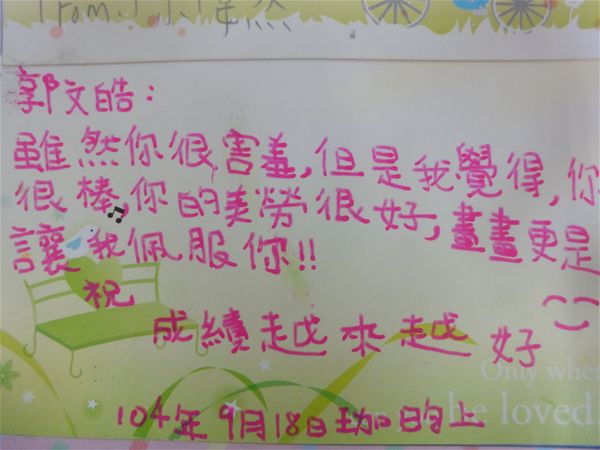 From:
郭文皓：
雖然你很害羞,但是我覺得,你
很棒,你的美勞很好,畫畫更是
讓我佩服你!!
祝
成績越來越好
Only when
he loved.
104年9月18日珈昀上